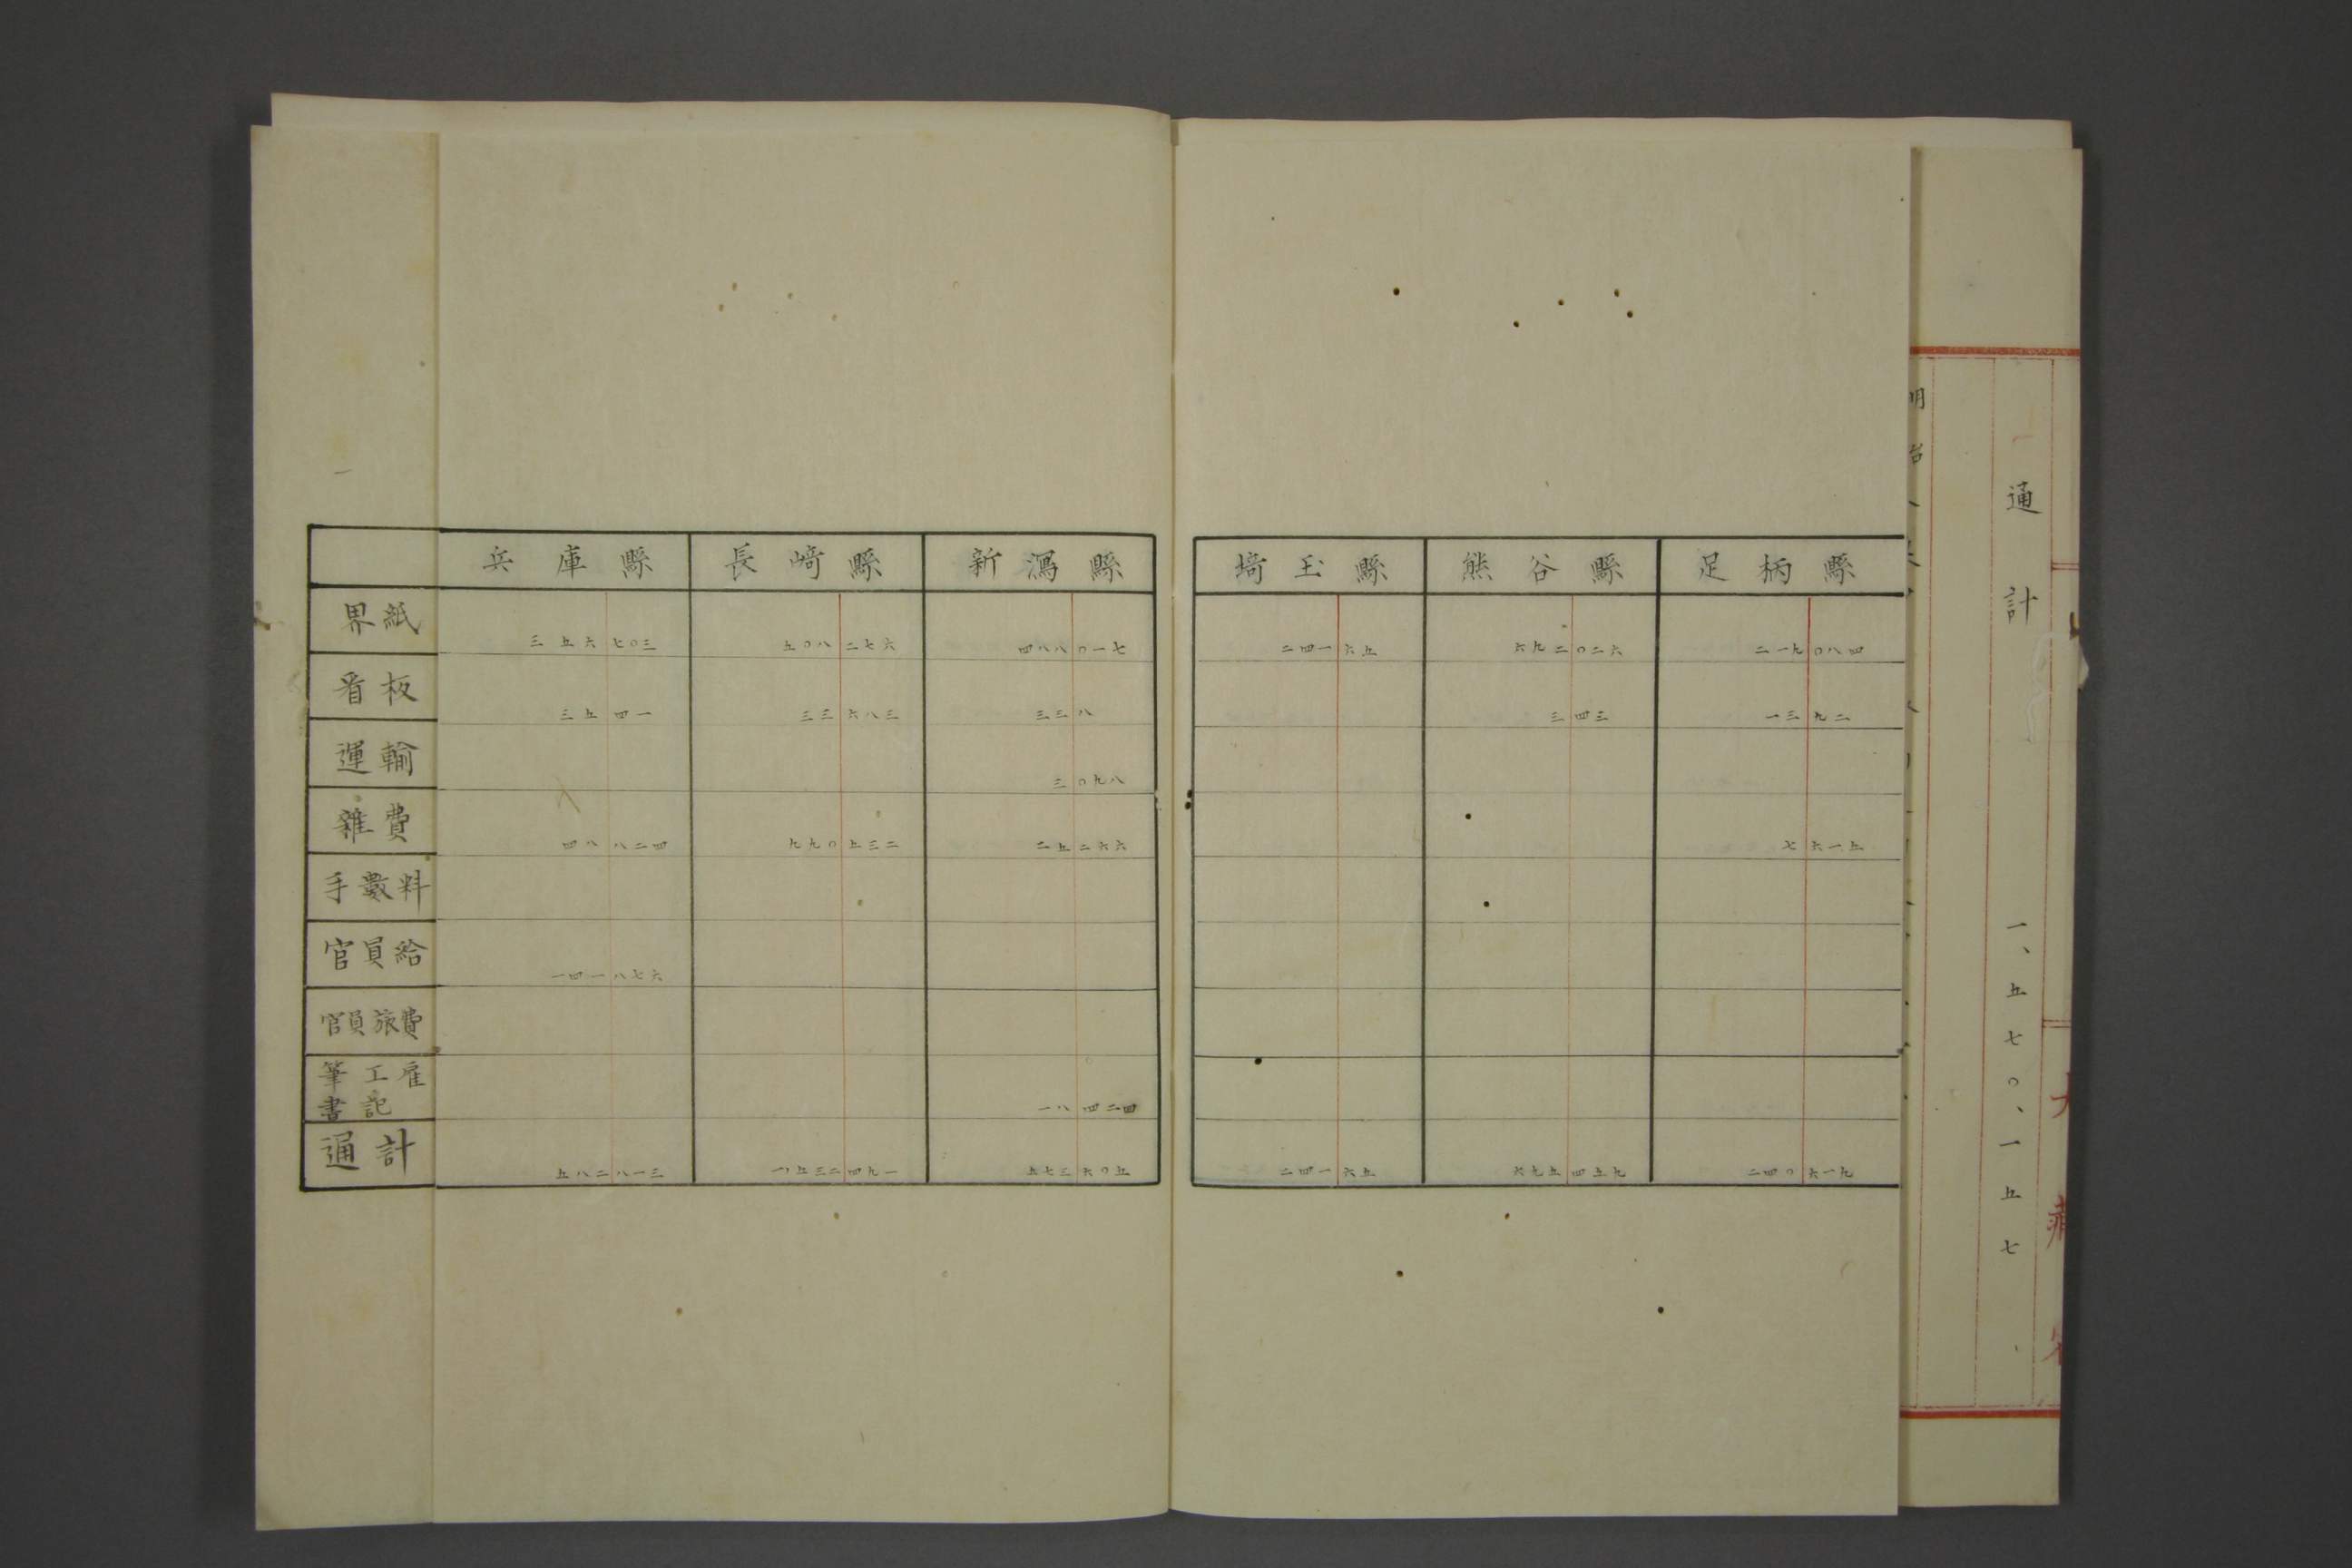 通計 一、五七〇、一五七
兵庫縣 長﨑縣 新潟縣 埼玉縣 熊谷縣 足柄縣
界紙 三五六七〇三 五〇八二七六 四八八〇一七 二四一六五 六九二〇二六 二一九〇八四
看板 三五四一 三三六八三 三三八 三四三 一三九二
運輸 三〇九八
雜費 四八八二四 九九〇五三二 二五二六六 七六一五
手數料
官員給 一四一八七六
官員旅費
筆工雇
書記 一八四二四
通計 五八二八一三 一、五三二四九一 五七三六〇五 二四一六五 六九五四五九 二四〇六一九